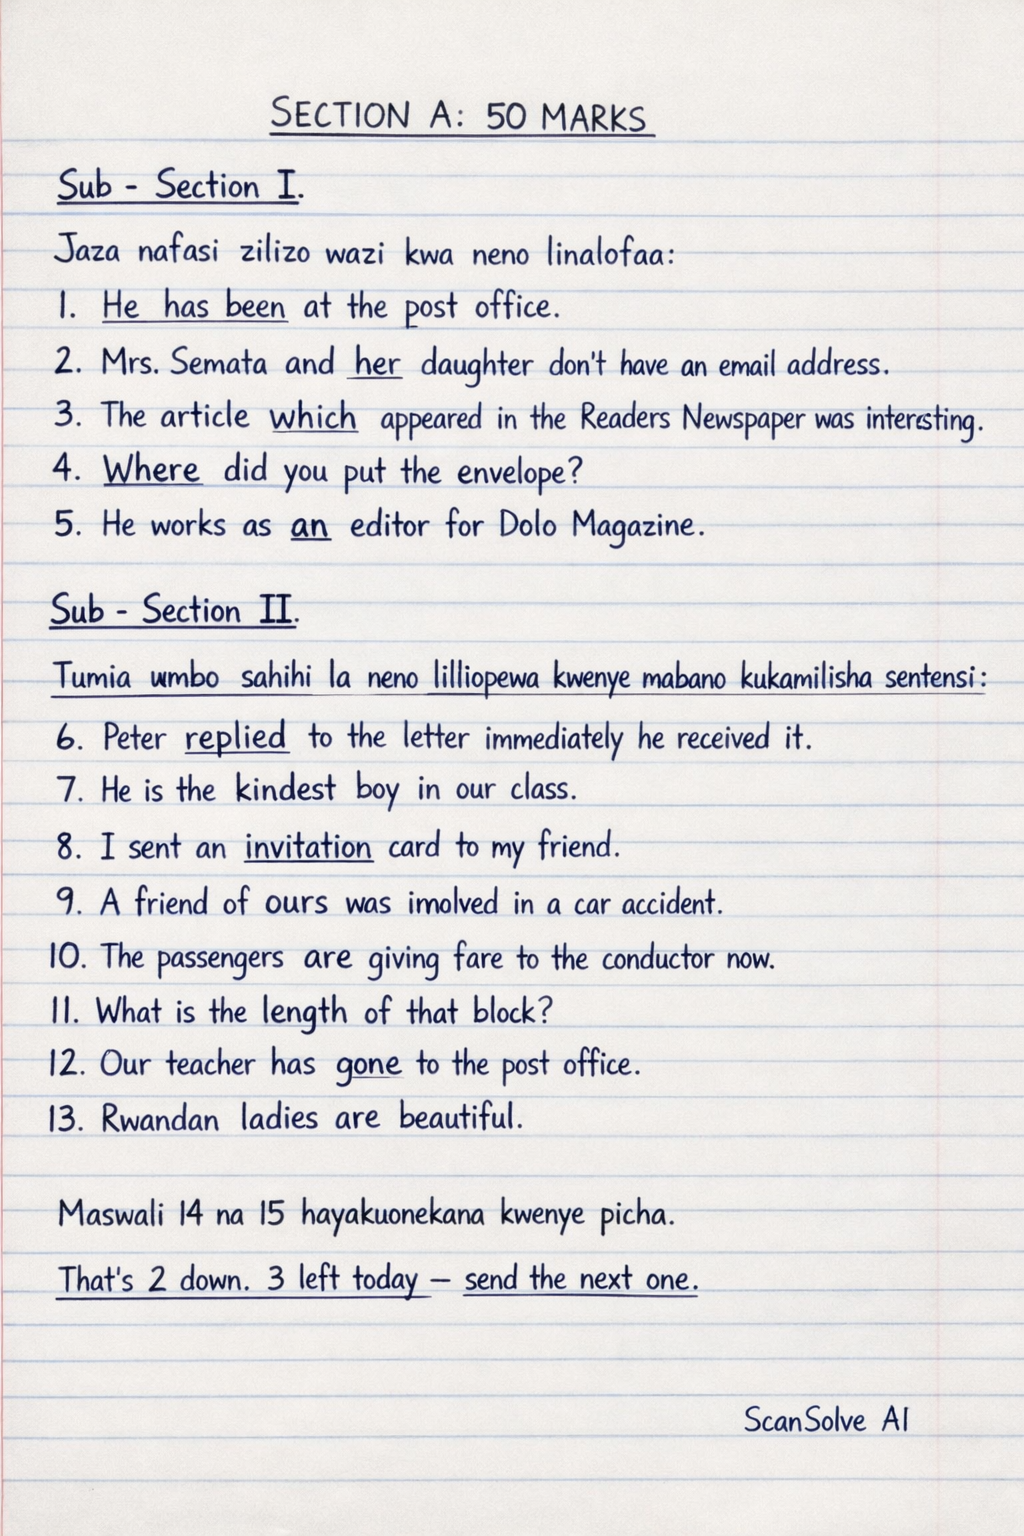 SECTION A: 50 MARKS
Sub - Section I.
Jaza nafasi zilizo wazi kwa neno linalofaa:
1. He has been at the post office.
2. Mrs. Semata and her daughter don't have an email address.
3. The article which appeared in the Readers Newspaper was interesting.
4. Where did you put the envelope?
5. He works as an editor for Dolo Magazine.
Sub - Section II.
Tumia umbo sahihi la neno lilliopewa kwenye mabano kukamilisha sentensi:
6. Peter replied to the letter immediately he received it.
7. He is the kindest boy in our class.
8. I sent an invitation card to my friend.
9. A friend of ours was imolved in a car accident.
10. The passengers are giving fare to the conductor now.
11. What is the length of that block?
12. Our teacher has gone to the post office.
13. Rwandan ladies are beautiful.
Maswali 14 na 15 hayakuonekana kwenye picha.
That's 2 down. 3 left today — send the next one.
ScanSolve AI